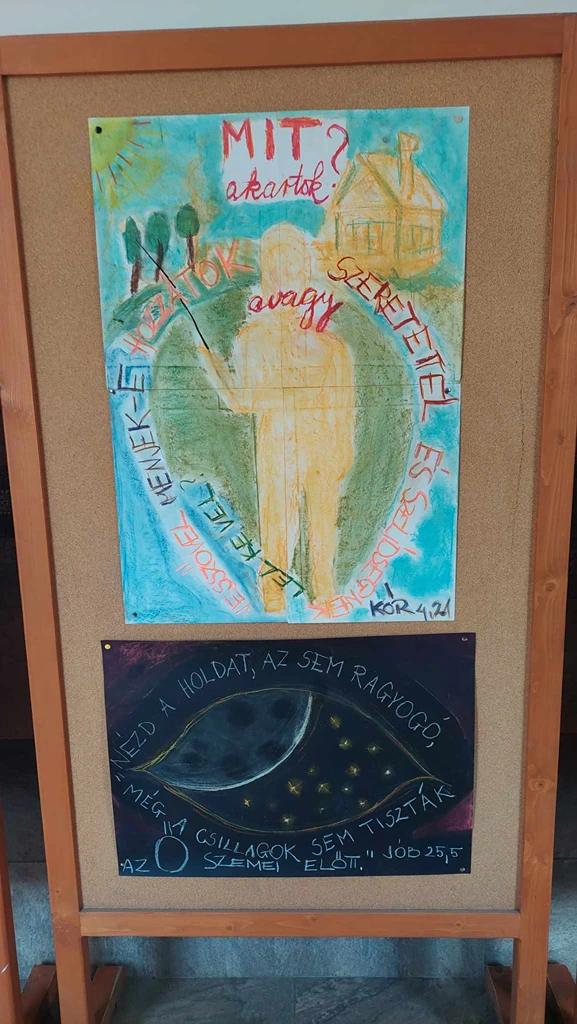 MIT
akartok?
VESSZŐVEL MENJEK-É HOZZÁTOK
avagy
SZERETETTEL ÉS SZELÍDSÉGNEK
LELKÉVEL?
I
KÓR 4,21
"NÉZD A HOLDAT, AZ SEM RAGYOGÓ,
MÉG A CSILLAGOK SEM TISZTÁK
AZ Ő SZEMEI ELŐTT." JÓB 25,5.